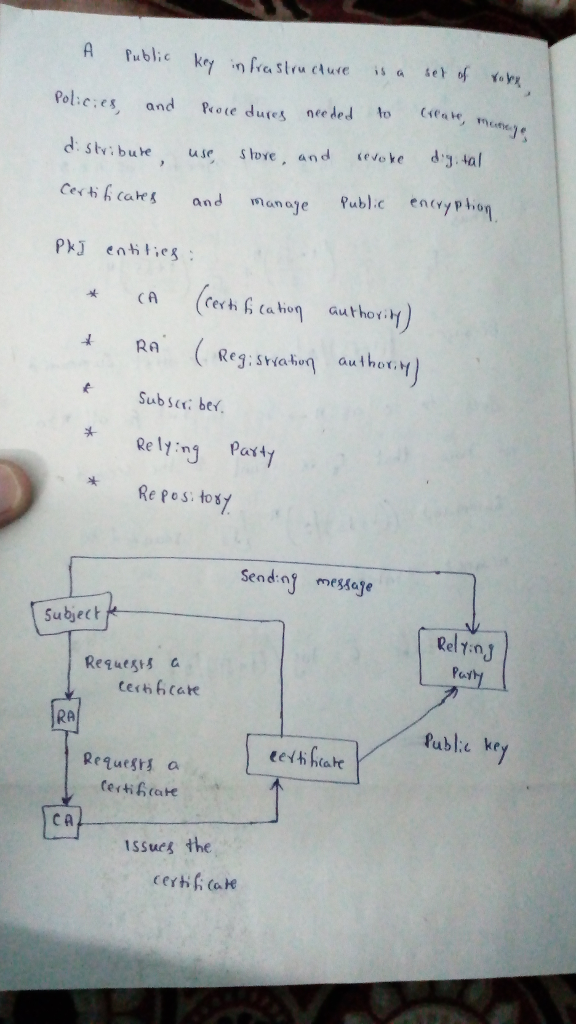 A Public key infrastructure is a set of roles,
Policies, and Procedures needed to create, manage,
distribute, use, store, and revoke digital
Certificates and manage Public encryption.
PKI entities:
* CA (certification authority)
* RA (Registration authority)
* Subscriber.
* Relying Party
* Repository.
Sending message
Subject
Relying
Party
Requests a
certificate
RA
Public key
certificate
Requests a
certificate
CA
Issues the
certificate